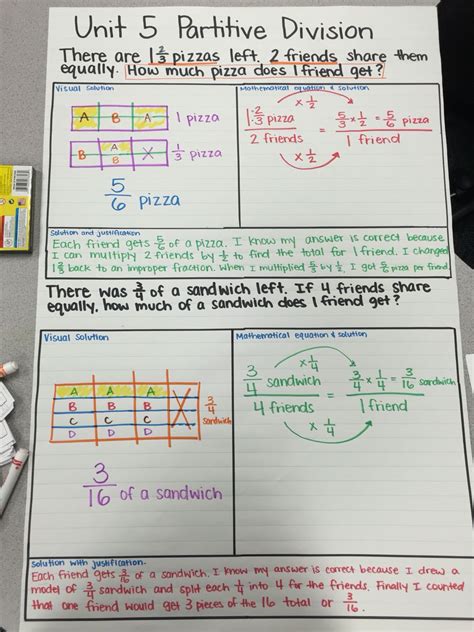 Unit 5 Partitive Division
There are 1 2/3 pizzas left. 2 friends share them
equally. How much pizza does 1 friend get?
Visual Solution
A B A 1 pizza
B A B X 1/3 pizza
5/6 pizza
Mathematical equation & solution
x 1/2
1 2/3 pizza / 2 friends = 5/3 x 1/2 = 5/6 pizza / 1 friend
x 1/2
Solution and justification
Each friend gets 5/6 of a pizza. I know my answer is correct because
I can multiply 2 friends by 1/2 to find the total for 1 friend. I changed
1 2/3 back to an improper fraction. When I multiplied 5/3 by 1/2, I got 5/6 pizza per friend.
There was 3/4 of a sandwich left. If 4 friends share
equally, how much of a sandwich does 1 friend get?
Visual Solution
A A A
B B B
C C C
D D D
X
3/4 sandwich
3/16 of a sandwich
Mathematical equation & solution
x 1/4
3/4 sandwich / 4 friends = 3/4 x 1/4 = 3/16 sandwich / 1 friend
x 1/4
Solution with justification.
Each friend gets 3/16 of a sandwich. I know my answer is correct because I drew a
model of 3/4 sandwich and split each 1/4 into 4 for the friends. Finally I counted
that one friend would get 3 pieces of the 16 total or 3/16.